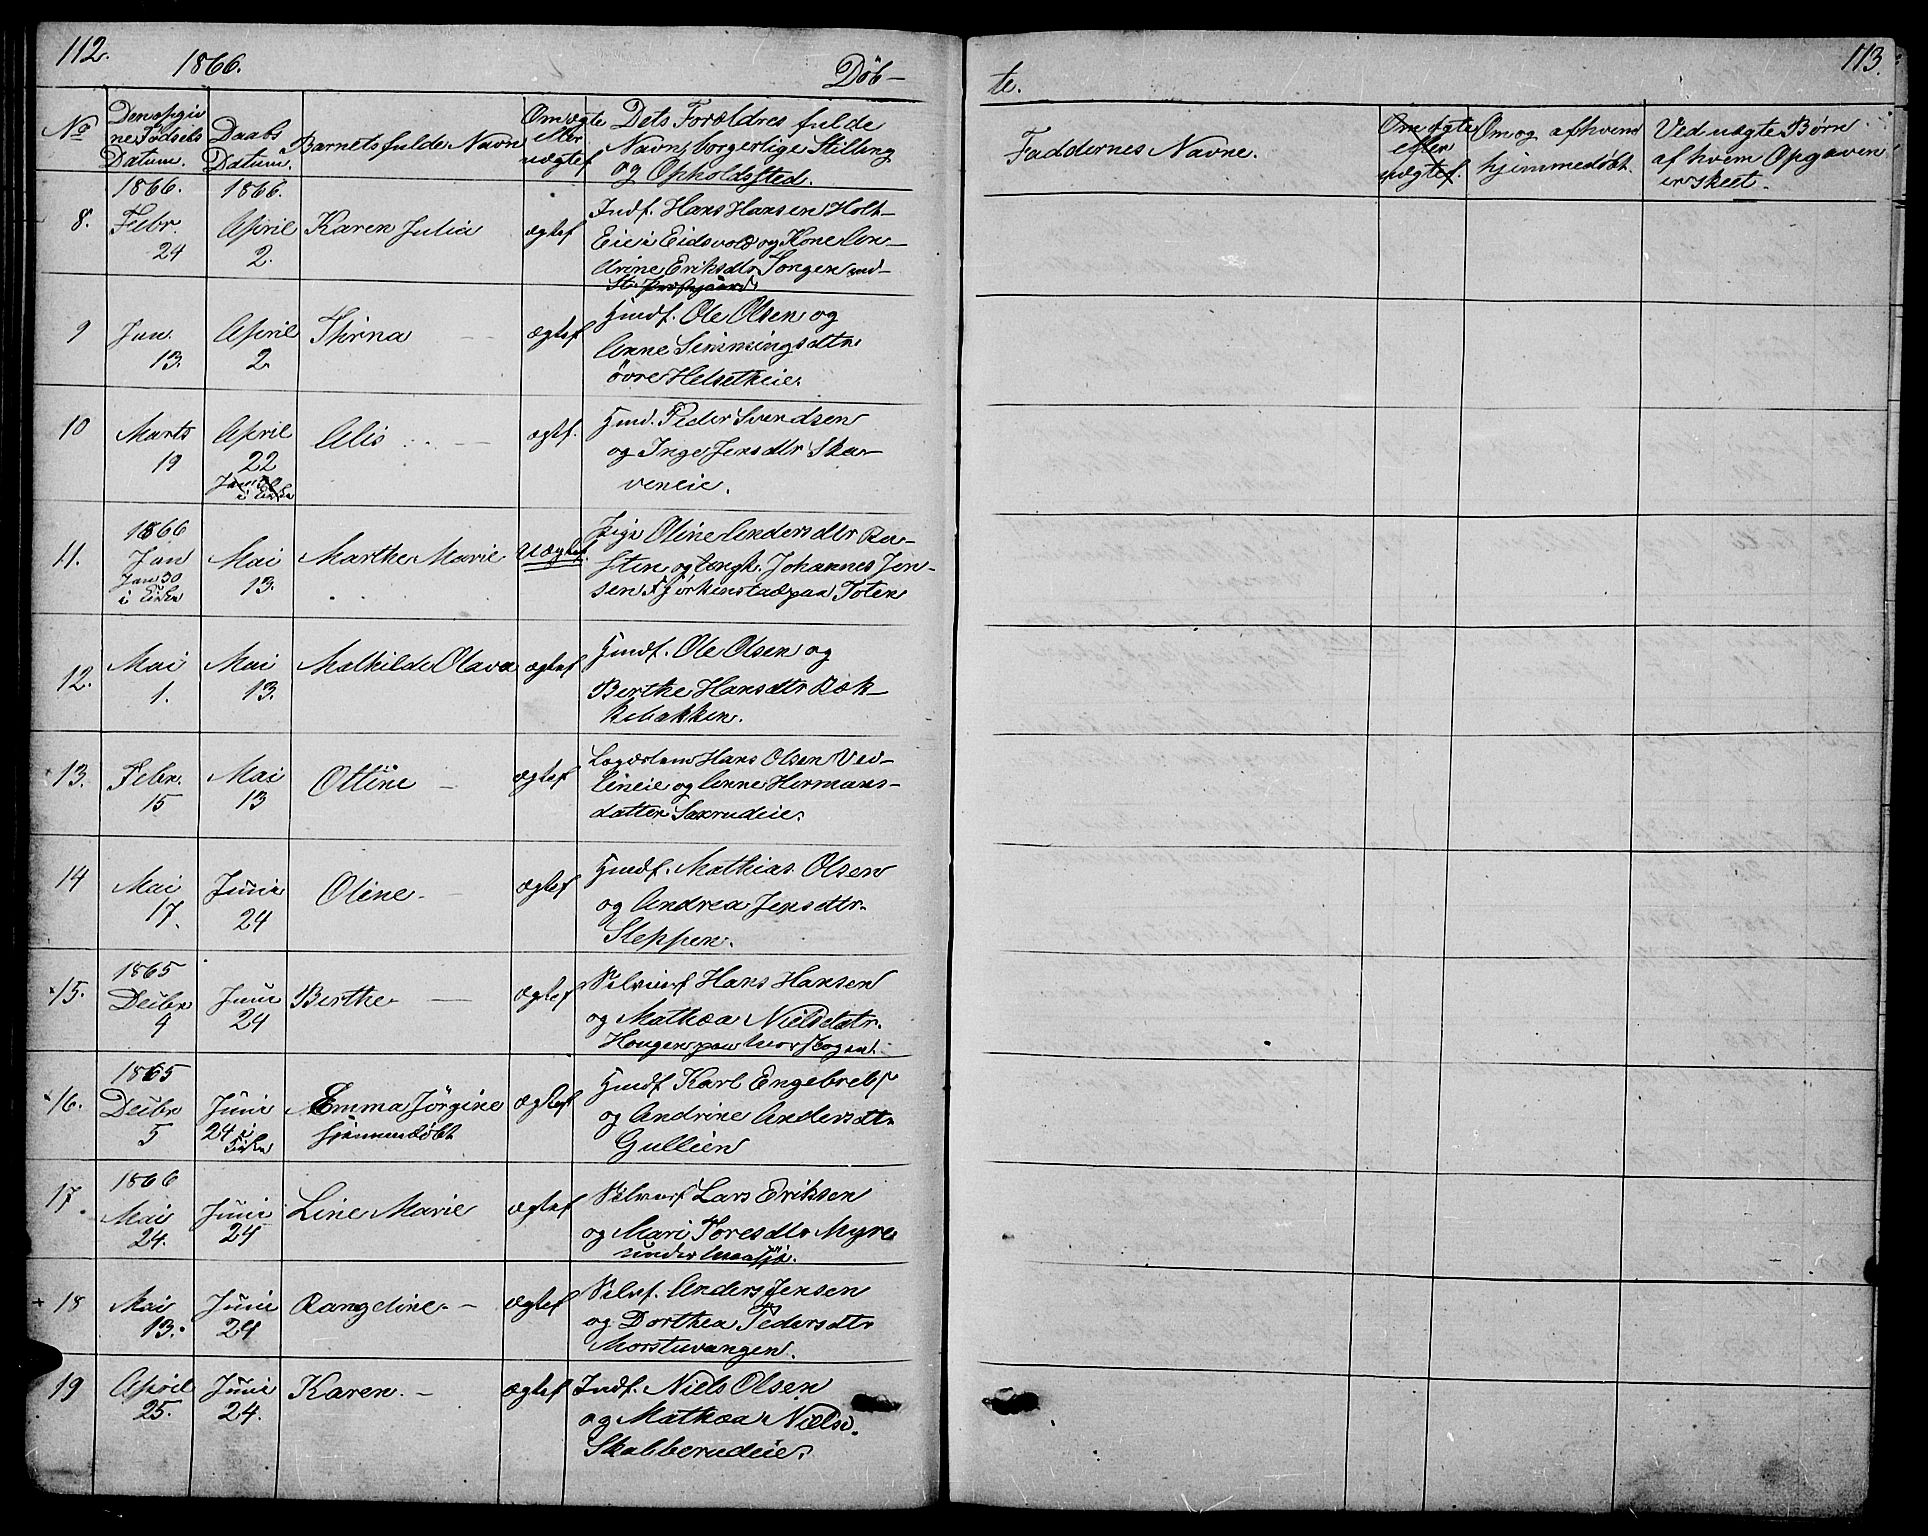 112.
1866.
Döb-
No
Den opgiv
ne Fødsels
Datum.
Daabs
Datum.
Barnets fulde Navn
Om ægte
eller
uægtef.
Dets Forældres fulde
Navn, borgerlige Stilling
og Opholdssted.
1866.
1866.
8.
Febr.
24
April
2.
Karen Julia
ægtef
Indf. Hans Hansen Holt-
Eie i Eidsvold og Kone An-
drine Eriksdtr Songen
9
Jan.
13.
April
2
Thrina
ægtef
Huusf. Ole Olsen og
Anne Simmingsdtr
övre Helsetheie.
10
Marts
19
April
22
Alis
ægtf.
Huusf. Peder Svendsen
og Inge Jensdtr Ska-
veneie.
11.
1866
Jan
Jan 30
i Kirken
Mai
13.
Marthe Marie
Uægtef
Pige Oline Andersdtr Ra-
sten og Ungk. Johannes Jen-
sen Fjörkenstad paa Toten
12.
Mai
1.
Mai
13.
Mathilde Olava
ægtef
Huusf. Ole Olsen og
Berthe Hansdtr Bæk-
kebakken.
13.
Febr.
15
Mai
13
Ottine
ægtef
Lægdslem Hans Olsen Ved-
leneie og Anne Hermans-
datter Saxrudeie.
14
Mai
17.
Junie
24
Oline
ægtef
Huusf. Mathias Olsen
og Andrea Jensdtr
Sleppen.
15.
1865
Decbr
9
Juni
24
Berthe
ægtef
Selveierf Hans Hansen
og Mathea Nielsdatr.
Hougen paa Morskogen.
16.
1865
Decbr
5
Juni
24 i
Kirken
Emma Jörgine
hjemmedöbt
ægtef
Huusf Karl Engebrets
og Andrine Andersdtr
Gullein
17.
1866
Mai
24.
Juni
24
Line Marie
ægtef
Selveierf Lars Eriksen
og Mari Toresdtr Myre
under
18
Mai
13.
Juni
24
Rangdine
ægtef
Selvf. Anders Jensen
og Dorthea Pedersdtr
Morstuvangen.
19
April
25.
Juni
24.
Karen.
ægtef
Indf. Niels Olsen
og Mathea Nielsd.
Skabberudeie.
113.
te.
Faddernes Navne.
Om ægte
eller
uægtef.
Om og af hvem
hjemmedöbt.
Ved uægte Børn
af hvem Opgaven
er skeet.